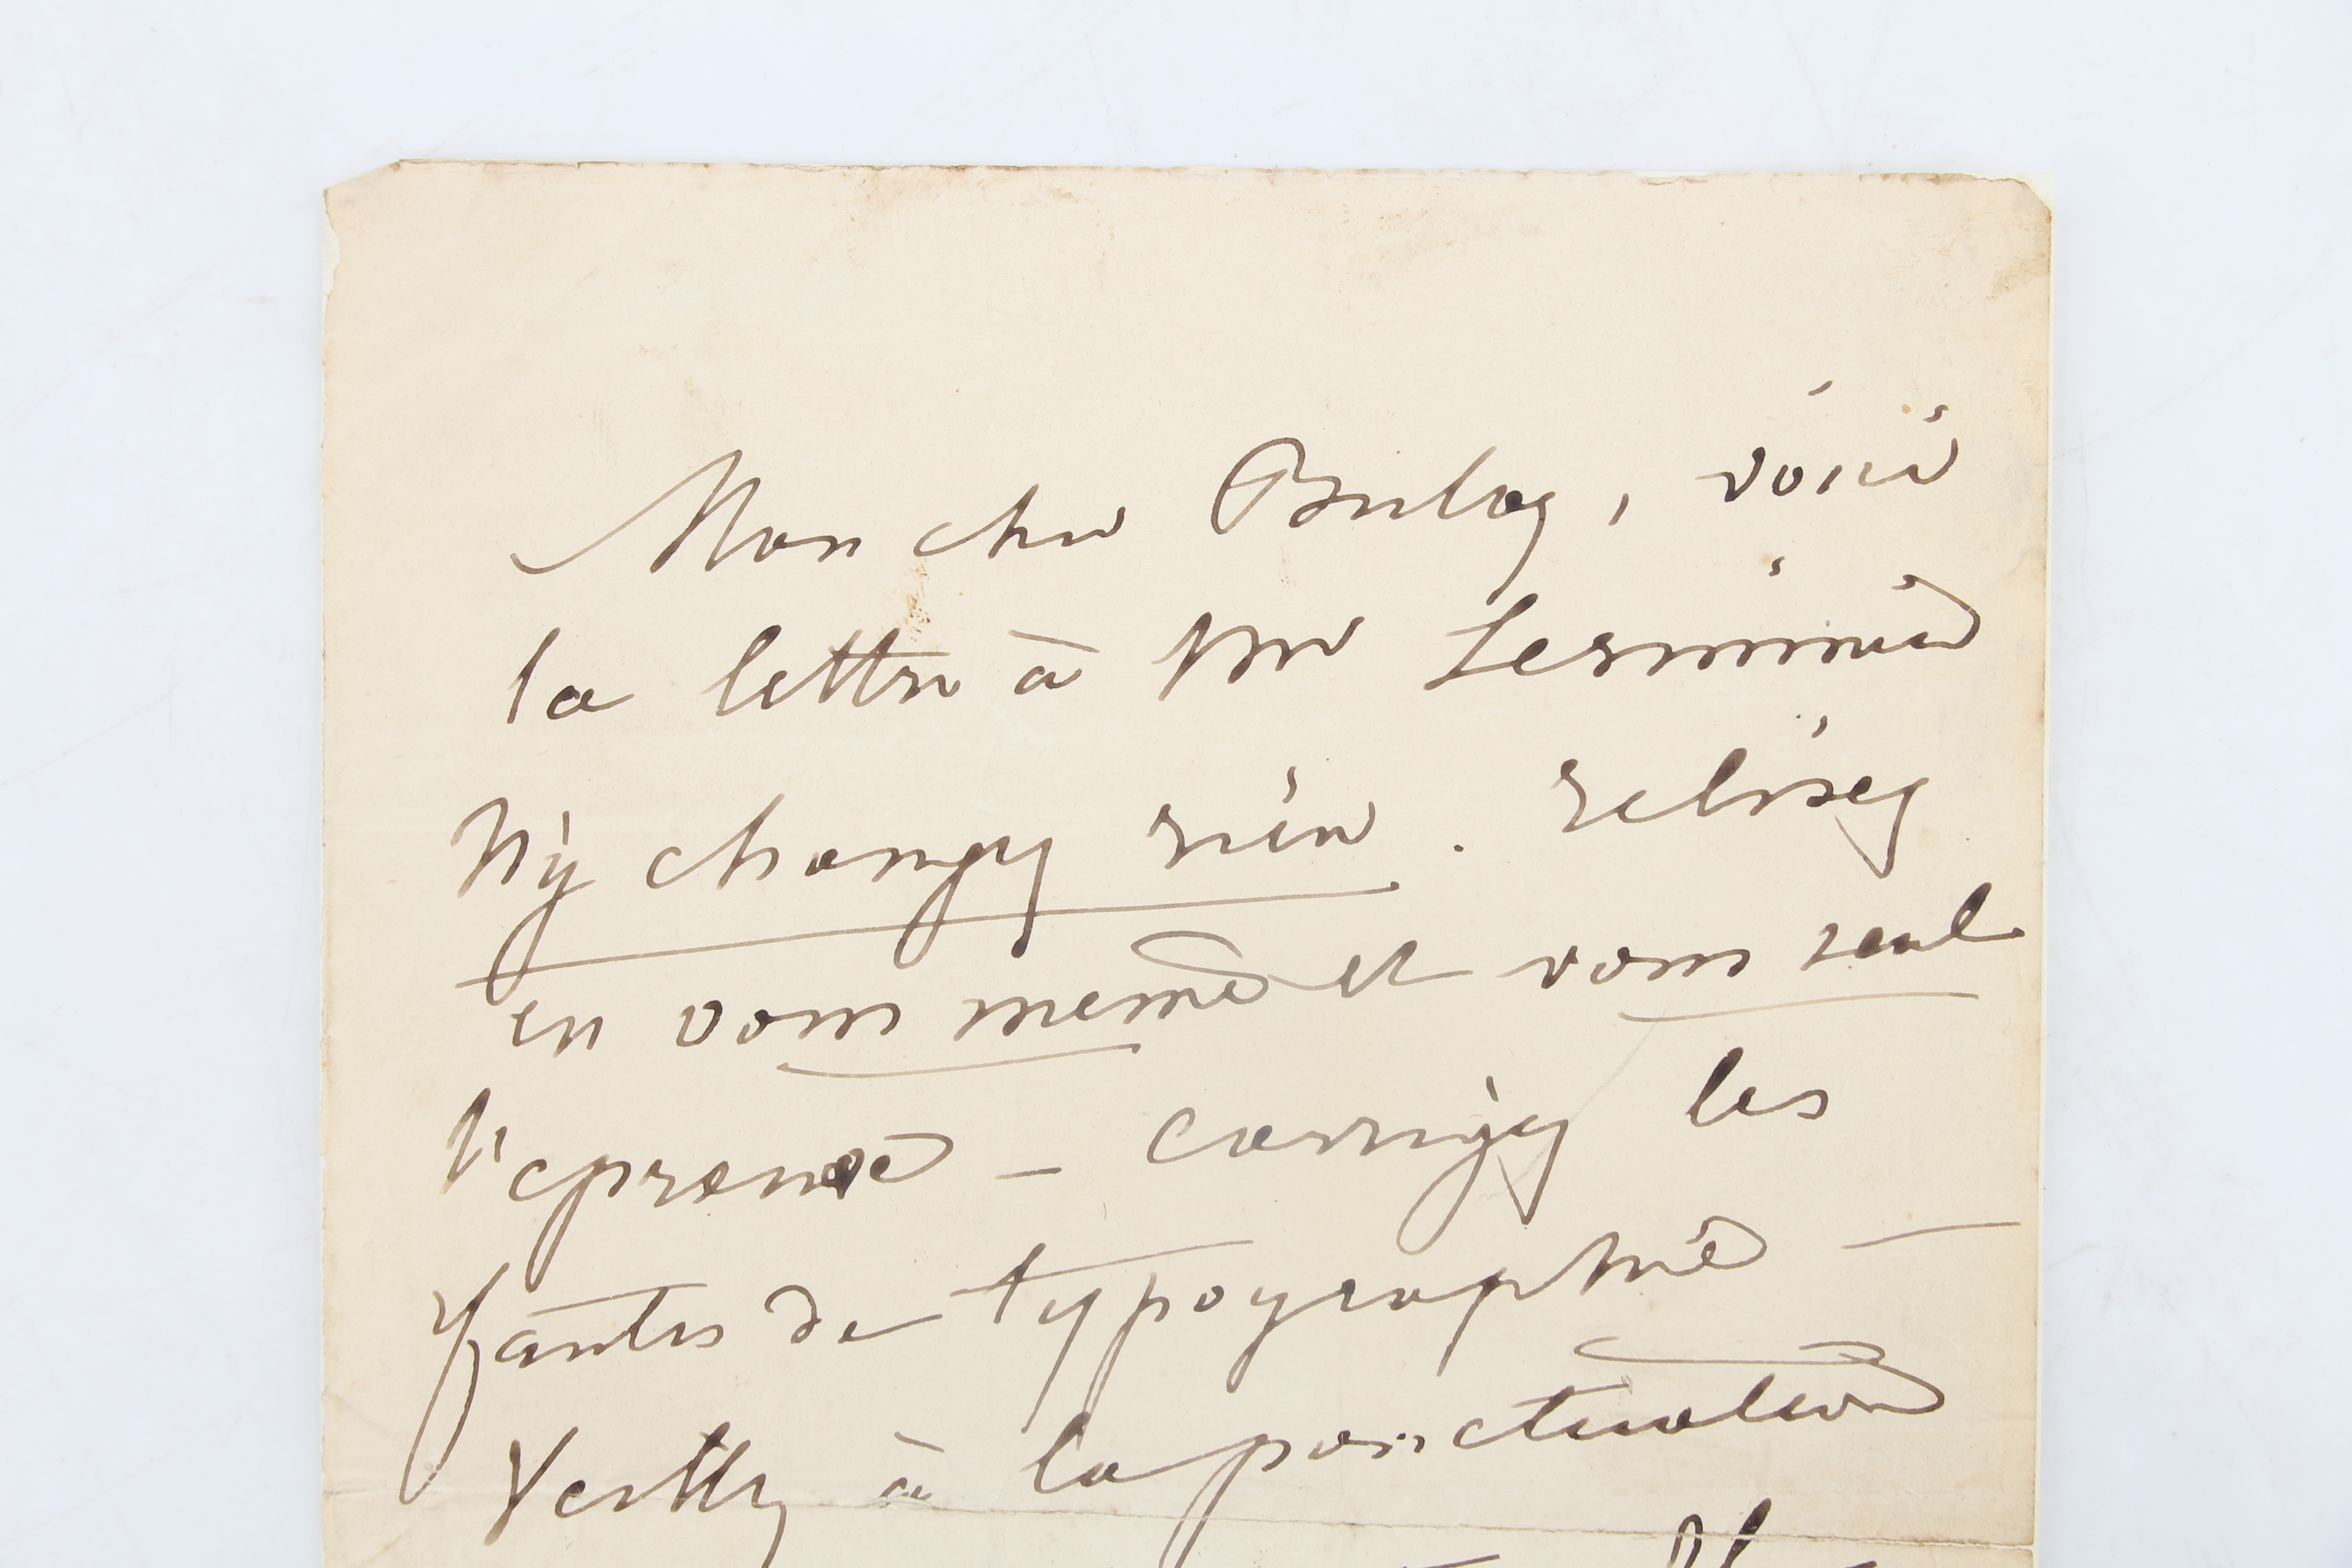 Mon cher Buloz, voici
la lettre à Mr Lerminier
N'y changez rien. relisez
en vous meme et vous seul
l'epreuve — corrigez les
fautes de typographie —
Veillez à la ponctuation